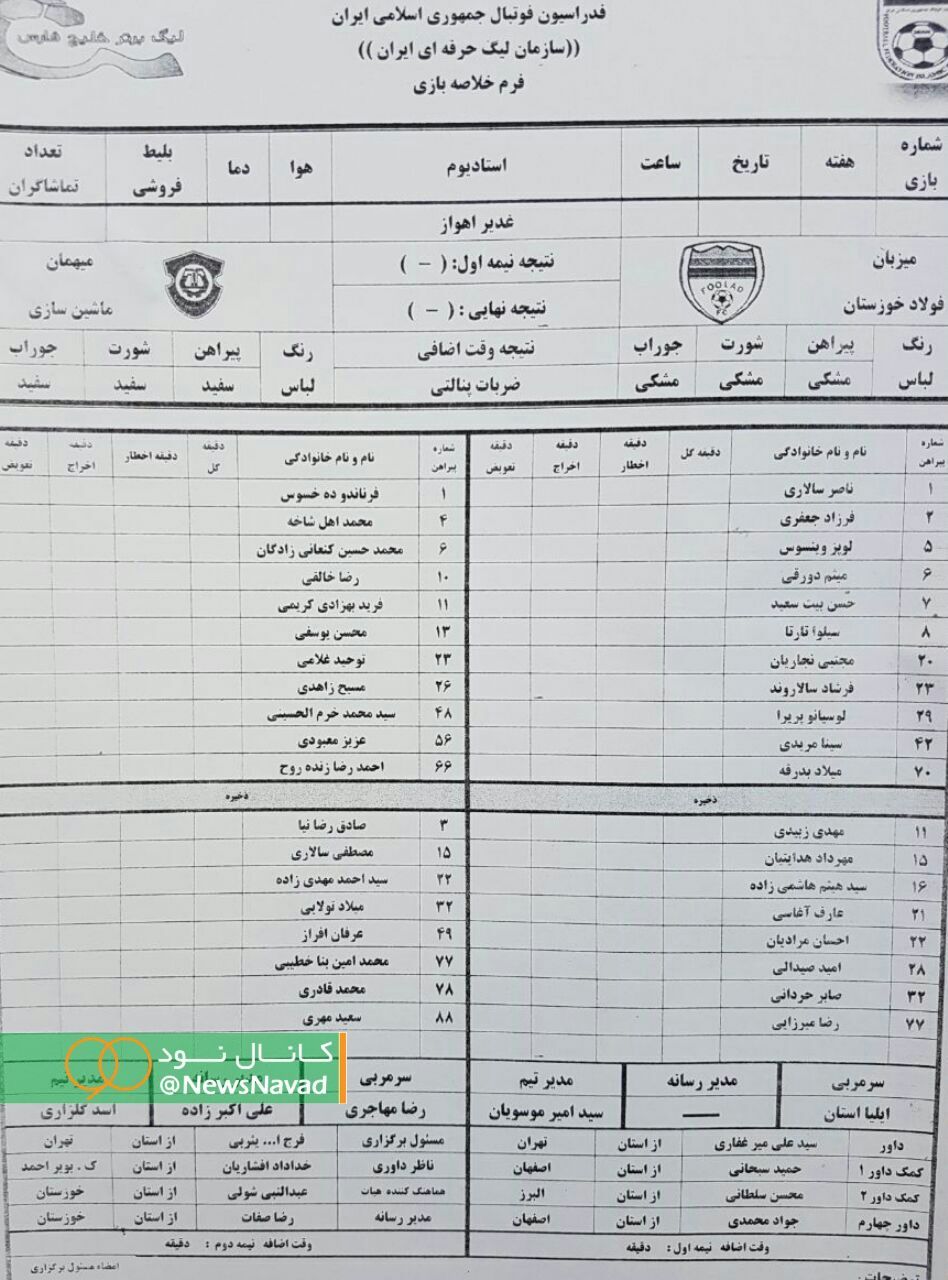 فدراسیون فوتبال جمهوری اسلامی ایران
((سازمان لیگ حرفه ای ایران))
فرم خلاصه بازی
لیگ برتر خلیج فارس
شماره بازی هفته تاریخ ساعت استادیوم هوا دما بلیط فروشی تعداد تماشاگران
غدیر اهواز
میزبان نتیجه نیمه اول: ( – ) میهمان
FOOLAD FC
فولاد خوزستان نتیجه نهایی: ( – ) ماشین سازی
رنگ پیراهن شورت جوراب نتیجه وقت اضافی رنگ پیراهن شورت جوراب
لباس مشکی مشکی مشکی ضربات پنالتی لباس سفید سفید سفید
شماره پیراهن نام و نام خانوادگی دقیقه گل دقیقه اخطار دقیقه اخراج دقیقه تعویض شماره پیراهن نام و نام خانوادگی دقیقه گل دقیقه اخطار دقیقه اخراج دقیقه تعویض
۱ ناصر سالاری ۱ فرناندو ده خسوس
۲ فرزاد جعفری ۴ محمد اهل شاخه
۵ لوپز وینسوس ۶ محمد حسین کنعانی زادگان
۶ میثم دورقی ۱۰ رضا خالقی
۷ حسن بیت سعید ۱۱ فرید بهزادی کریمی
۸ سیلوا تارتا ۱۳ محسن یوسفی
۲۰ مجتبی نجاریان ۲۳ توحید غلامی
۲۳ فرشاد سالاروند ۲۶ مسیح زاهدی
۲۹ لوسیانو پریرا ۴۸ سید محمد خرم الحسینی
۴۲ سینا مریدی ۵۶ عزیز معبودی
۷۰ میلاد بدرقه ۶۶ احمد رضا زنده روح
ذخیره ذخیره
۱۱ مهدی زبیدی ۳ صادق رضا نیا
۱۵ مهرداد هدایتیان ۱۵ مصطفی سالاری
۱۶ سید هیثم هاشمی زاده ۲۲ سید احمد مهدی زاده
۲۱ عارف آغاسی ۳۲ میلاد تولایی
۲۲ احسان مرادیان ۴۹ عرفان افراز
۲۸ امید صیدالی ۷۷ محمد امین بنا خطیبی
۳۲ صابر حردانی ۷۸ محمد قادری
۷۷ رضا میرزایی ۸۸ سعید مهری
کانال نود
@NewsNavad
سرمربی مدیر رسانه مدیر تیم سرمربی مدیر تیم
ایلیا استان —— سید امیر موسویان رضا مهاجری علی اکبر زاده اسد گلزاری
داور سید علی میر غفاری از استان تهران مسئول برگزاری فرج ا... یثربی از استان تهران
کمک داور ۱ حمید سبحانی از استان اصفهان ناظر داوری خداداد افشاریان از استان ک . بویر احمد
کمک داور ۲ محسن سلطانی از استان البرز هماهنگ کننده هیات عبدالنبی شولی از استان خوزستان
داور چهارم جواد محمدی از استان اصفهان مدیر رسانه رضا صفات از استان خوزستان
وقت اضافه نیمه اول: دقیقه وقت اضافه نیمه دوم: دقیقه
توضیحات: امضاء مسئول برگزاری